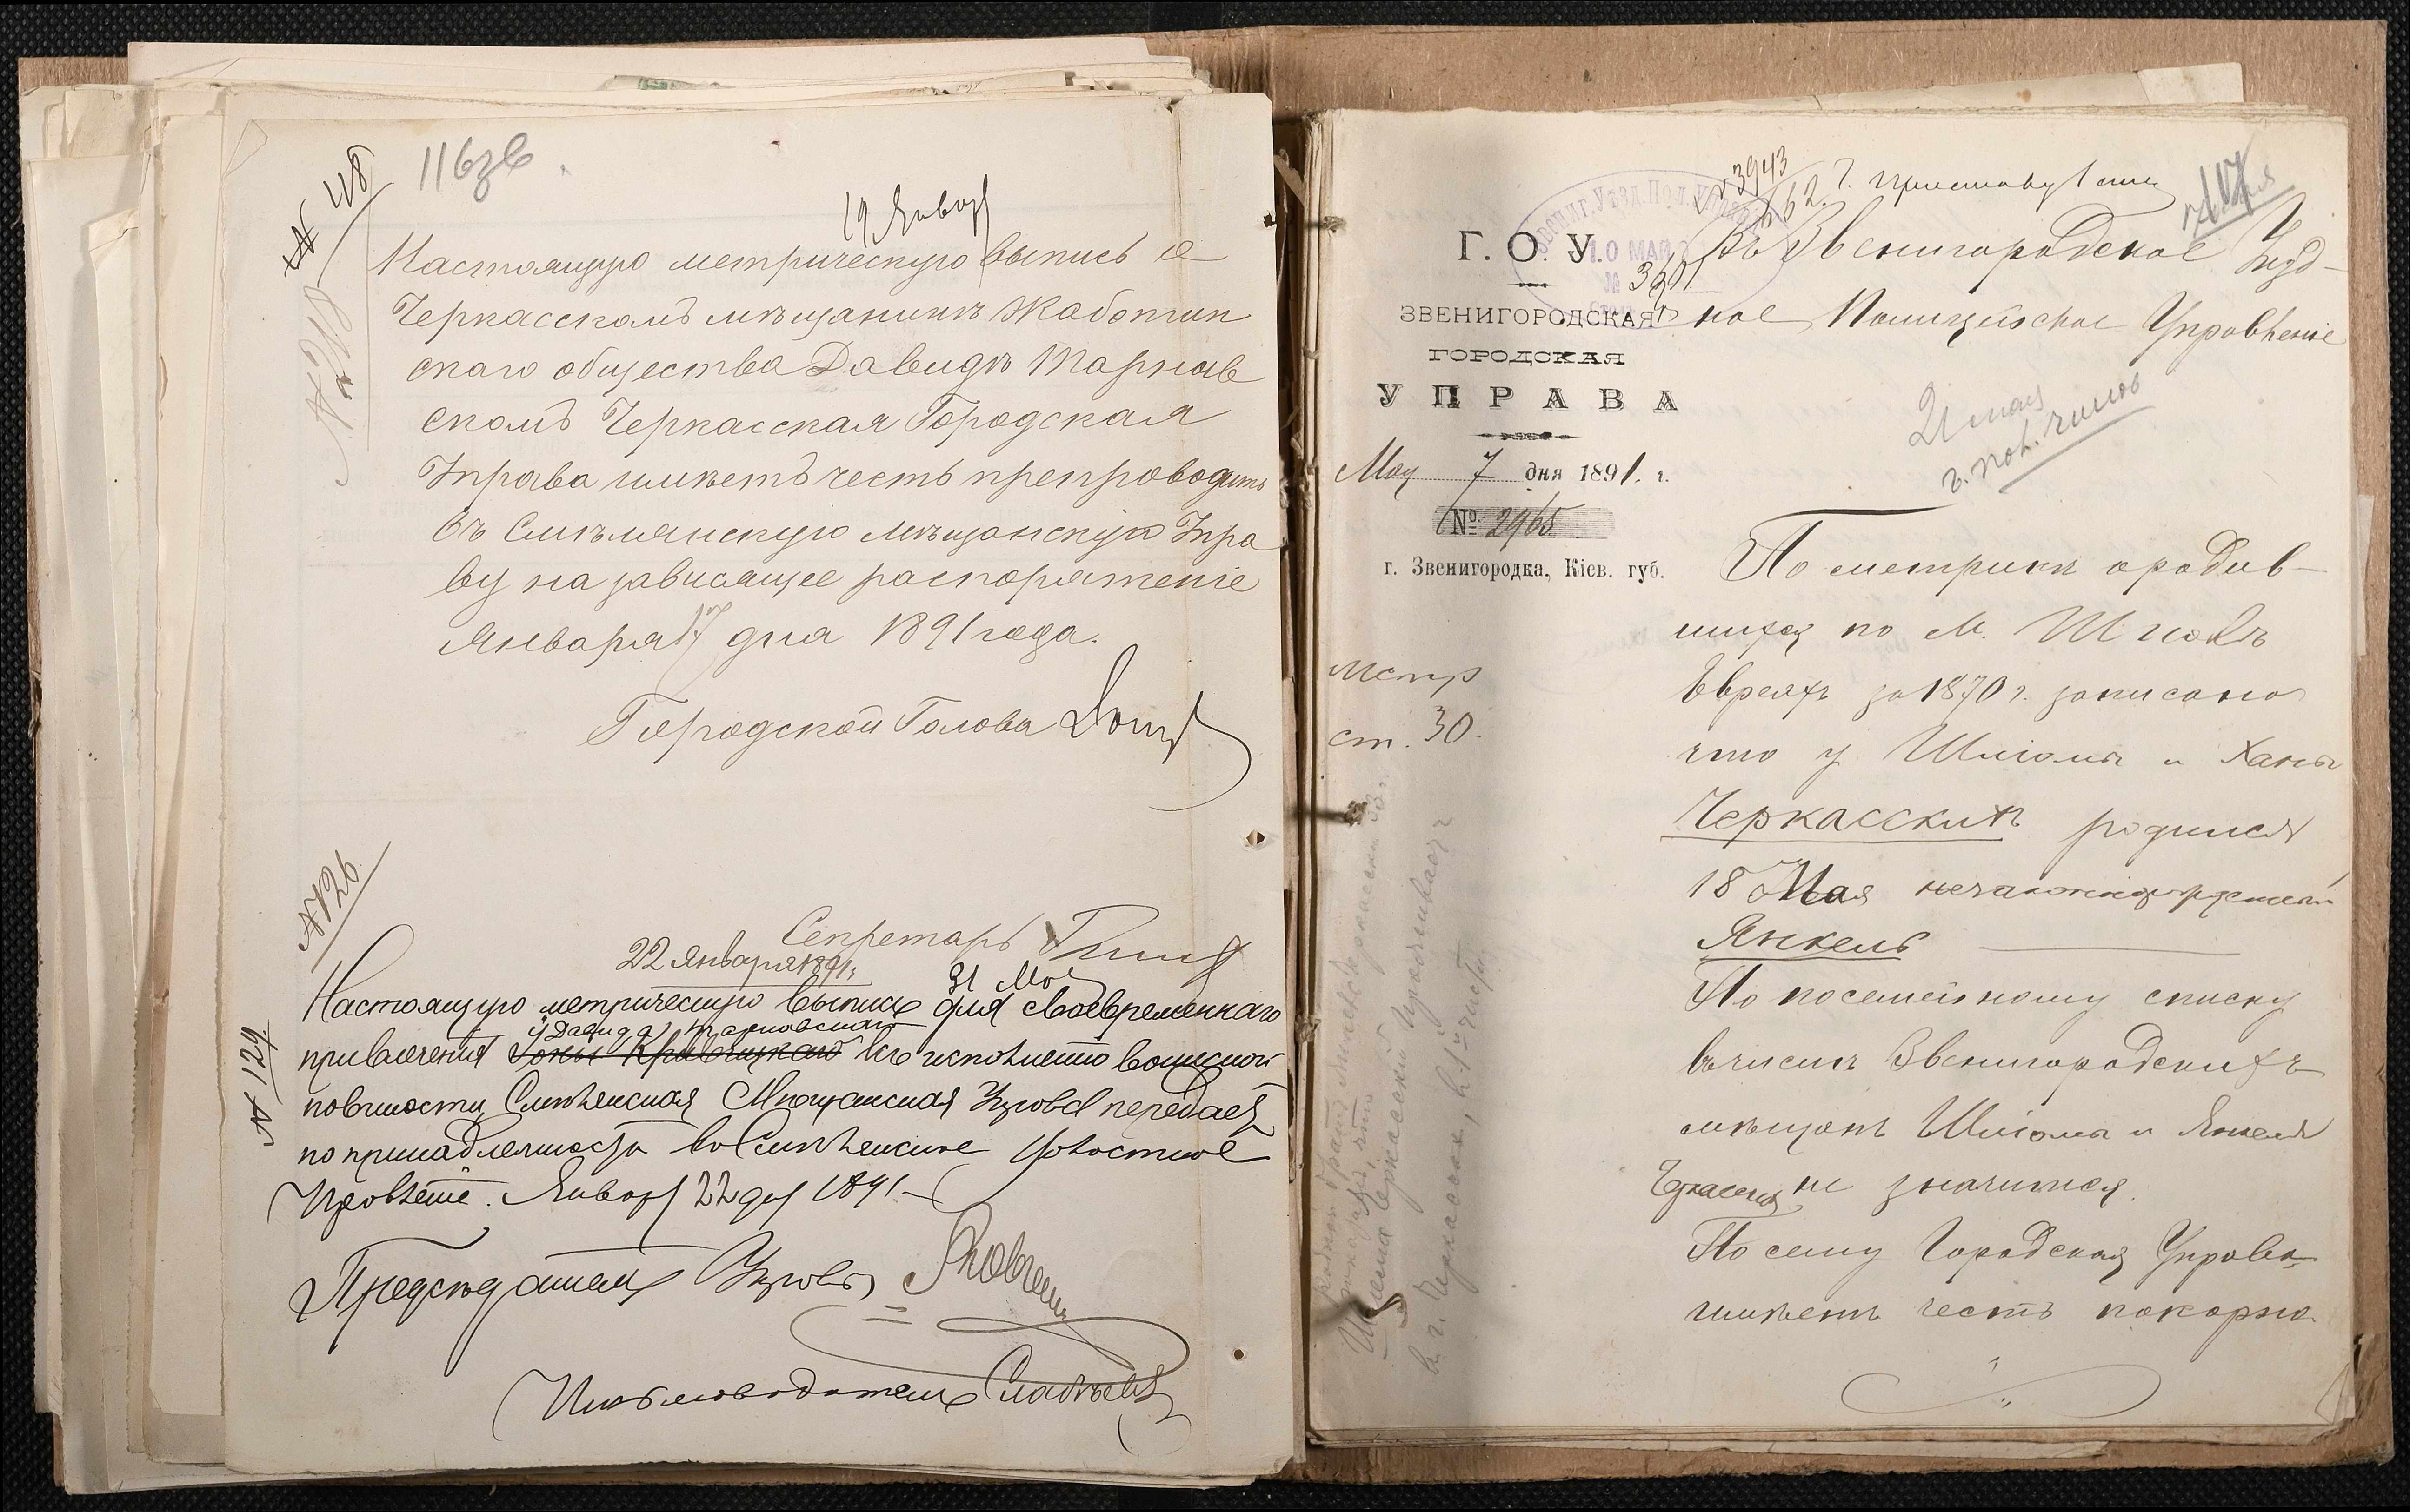 116зв.
№ 48
19 Январ
Настоящую метрическую выпись о
Черкасскомъ мѣщанинѣ Жаботин
скаго общества Давидѣ Тарнав
скомъ Черкасская Городская
Управа имѣетъ честь препроводить
въ Смѣлянскую мѣщанскую Упра
ву на зависящее распоряженіе
Января 17 дня 1891 года.
Городской Голова
Секретарь
№ 126
22 января 1891 г.
Настоящую метрическую выпись для своевременнаго
у Давида Тарновскаго
привлеченія къ исполненію воинской
№ 129.
повинности Смѣлянская Мѣщанская Управа передаетъ
по принадлежности въ Смѣлянское Волостное
Правленіе. Январь 22 дня 1891.
Предсѣдатель Управы
Письмоводитель
3943
562. Г. Приставу 1 стана
117
10 МАЯ
№ 3901
Г. О. У.
ЗВЕНИГОРОДСКАЯ
ГОРОДСКАЯ
УПРАВА
Мая 7 дня 1891. г.
№ 2965
г. Звенигородка, Кіев. губ.
Въ Звенигородское Уѣзд-
ное Полицейское Управленіе
21 мая
метр
ст. 30.
По метрикѣ о родив-
шихся по М. Шполѣ
Евреяхъ за 1870 г. записано
что у Шліомы и Ханы
Черкасскихъ родился
18 Мая
Янкель
По посемейному списку
въ числѣ Звенигородскихъ
мѣщанъ Шліома и Янкель
Черкасскіе не значится.
По сему Городская Управа
имѣетъ честь покорно